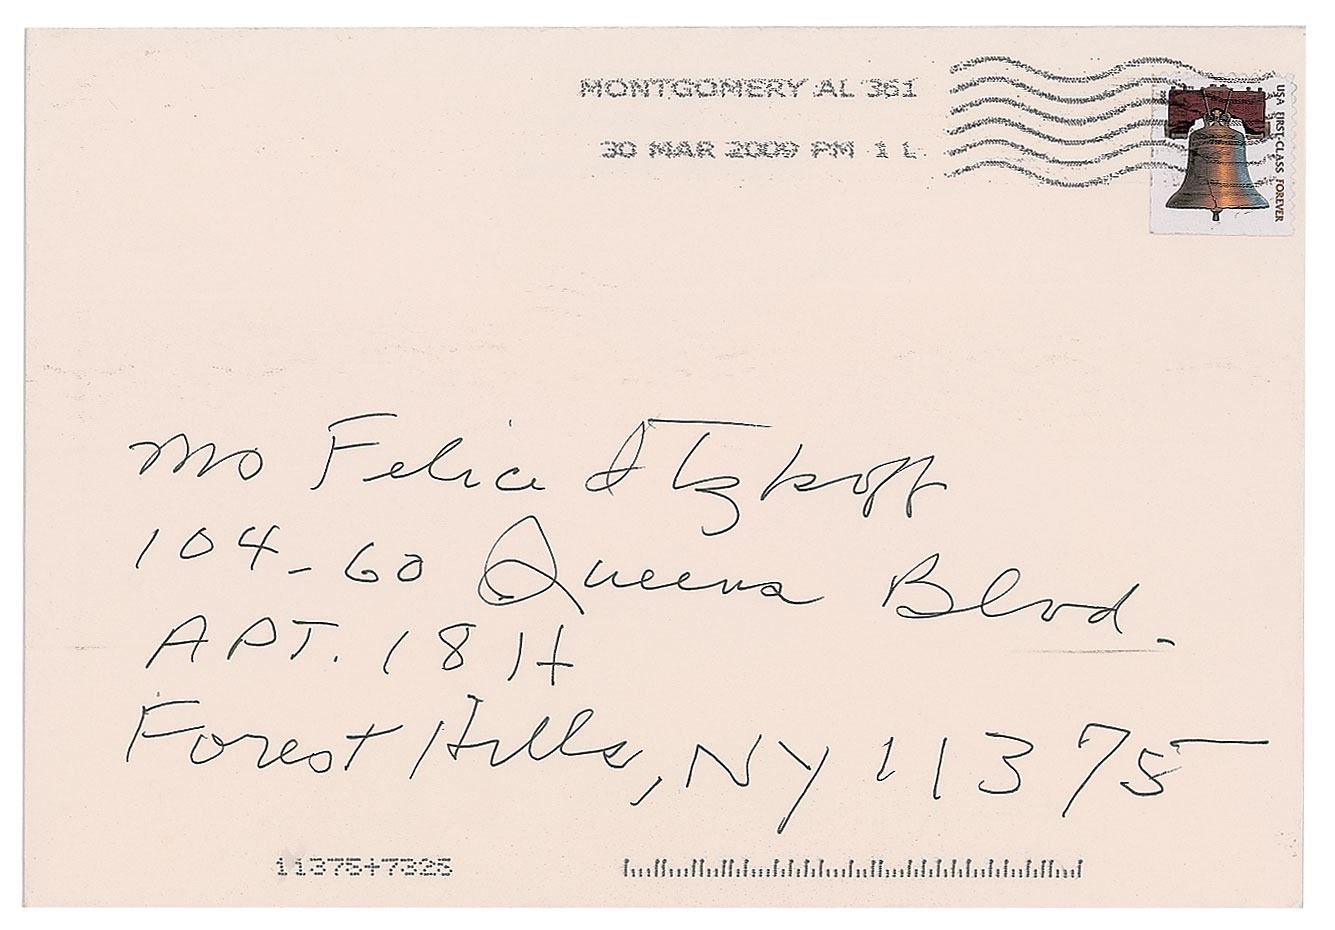 MONTGOMERY AL 361
30 MAR 2009 PM 1 L
USA FIRST-CLASS FOREVER
Ms Felice Itzkoff
104-60 Queens Blvd.
APT. 18 H
Forest Hills, NY 11375
11375+7325